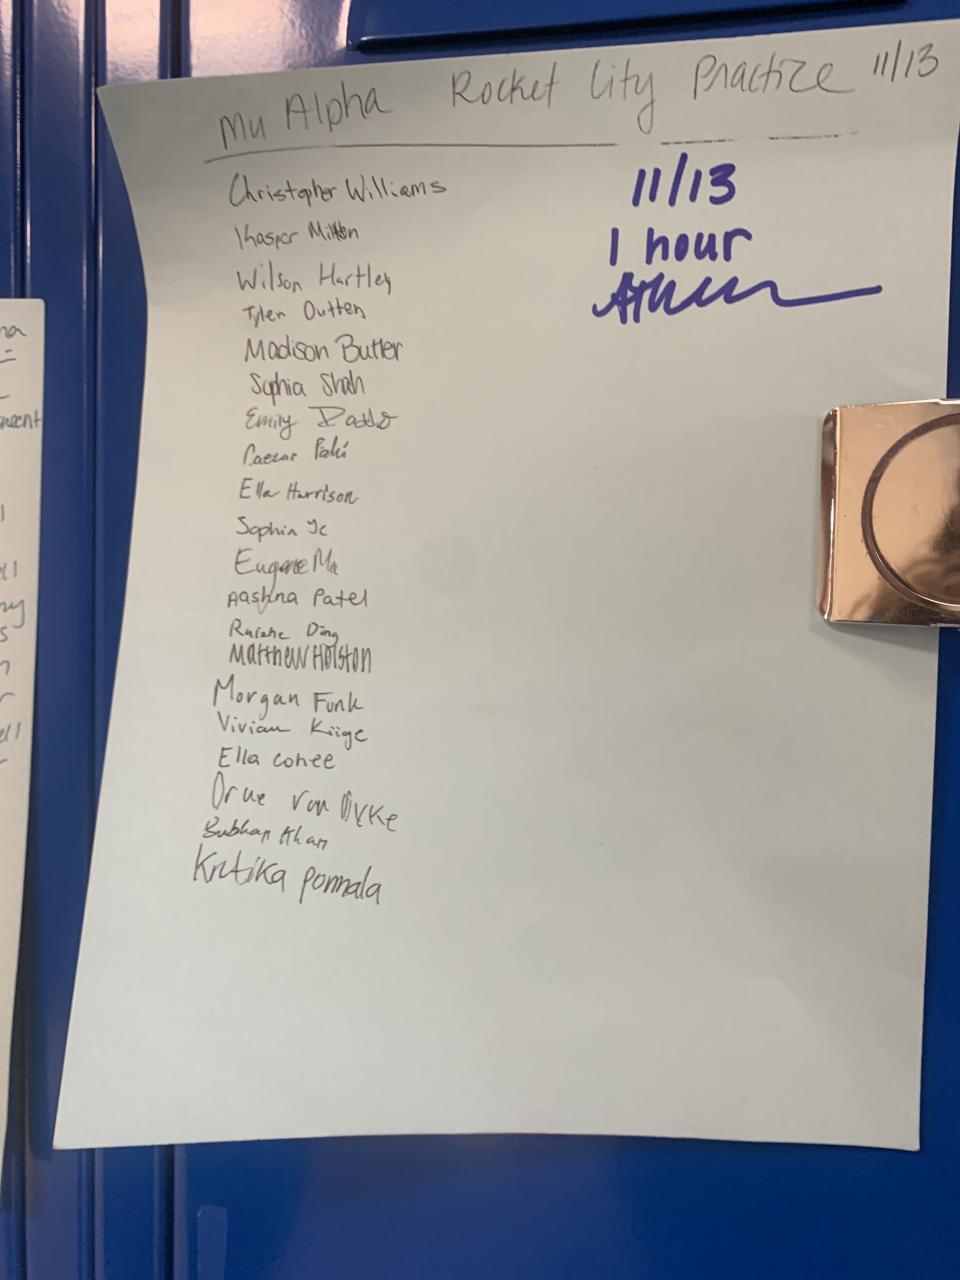 Mu Alpha Rocket City Practice 11/13
11/13
1 hour
Christopher Williams
Kaspar Milton
Wilson Hartley
Tyler Outten
Madison Butler
Sophia Shah
Emily
Caesar
Ella Harrison
Sophia Ye
Eugene Ma
Aashna Patel
Ruizhe Ding
Matthew Holston
Morgan Funk
Vivian Kiige
Ella Cohee
Van Dyke
Subhan Khan
Kritika Ponnala